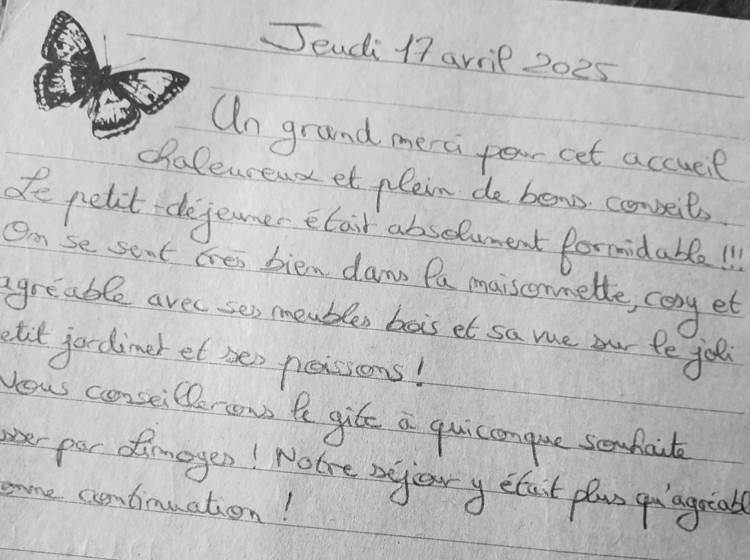 Jeudi 17 avril 2025
Un grand merci pour cet accueil
chaleureux et plein de bons conseils.
Le petit-déjeuner était absolument formidable !!!
On se sent très bien dans la maisonnette, cosy et
agréable avec ses meubles bois et sa vue sur le joli
etit jardinet et ses poissons !
Nous conseillerons le gîte à quiconque souhaite
sser par Limoges ! Notre séjour y était plus qu'agréabl
onne continuation !